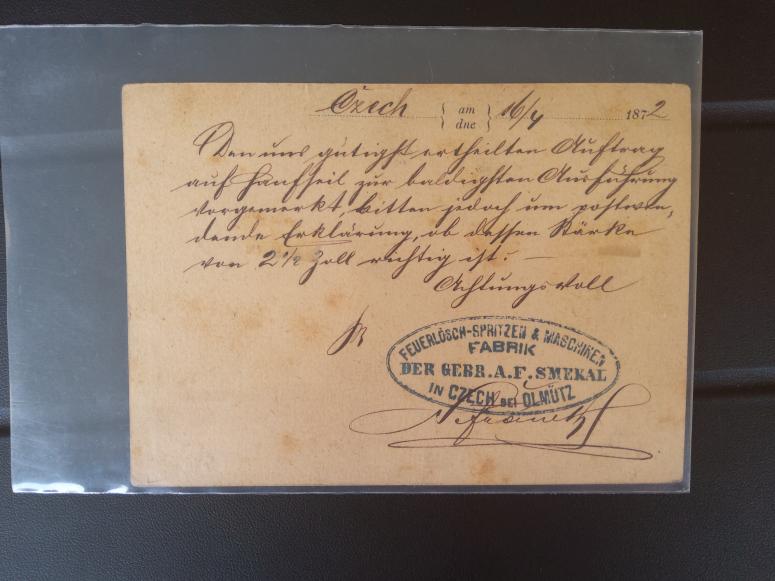 Czech am dne 16/4 1872
Den uns gütigst ertheilten Auftrag
auf Hanfseil zur baldigsten Ausführung
vorgemerkt, bitten jedoch um postwen„
dende Erklärung, ob dessen Stärke
von 2 1/2 Zoll richtig ist. —
Achtungsvoll
FEUERLÖSCH-SPRITZEN & MASCHINEN
FABRIK
DER GEBR. A. F. SMEKAL
IN CZECH BEI OLMÜTZ